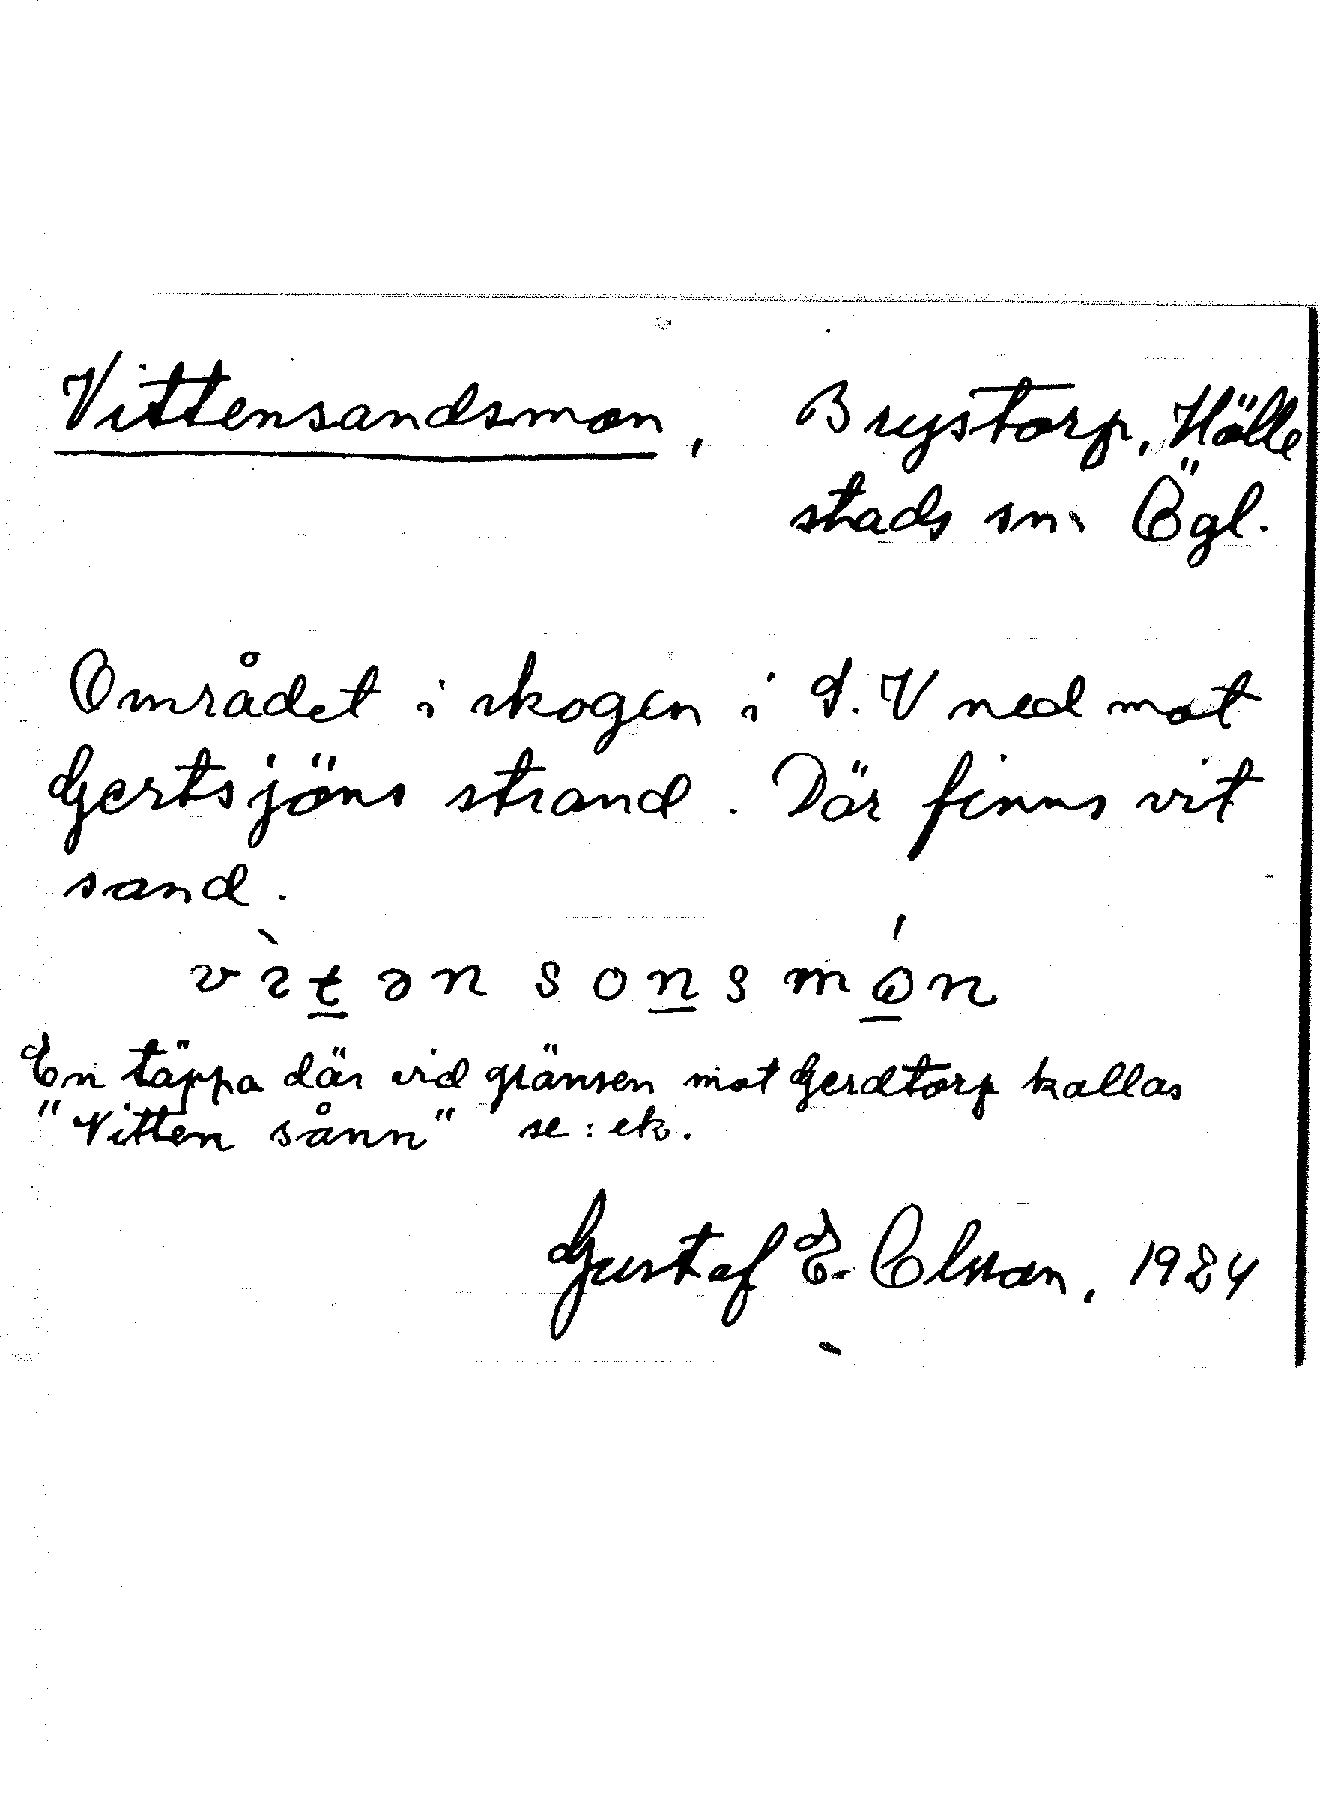 Vittensandsmon, Brystorp, Hälle
stads sn. Ögl.
Området i skogen i S.V ned mot
Gertsjöns strand. Där finns vit
sand.
vìt̲ən son̲smó̲n
En täppa där vid gränsen mot Gerdtorp kallas
"Vitten sånn" se: ek.
Gustaf E. Olsson, 1924